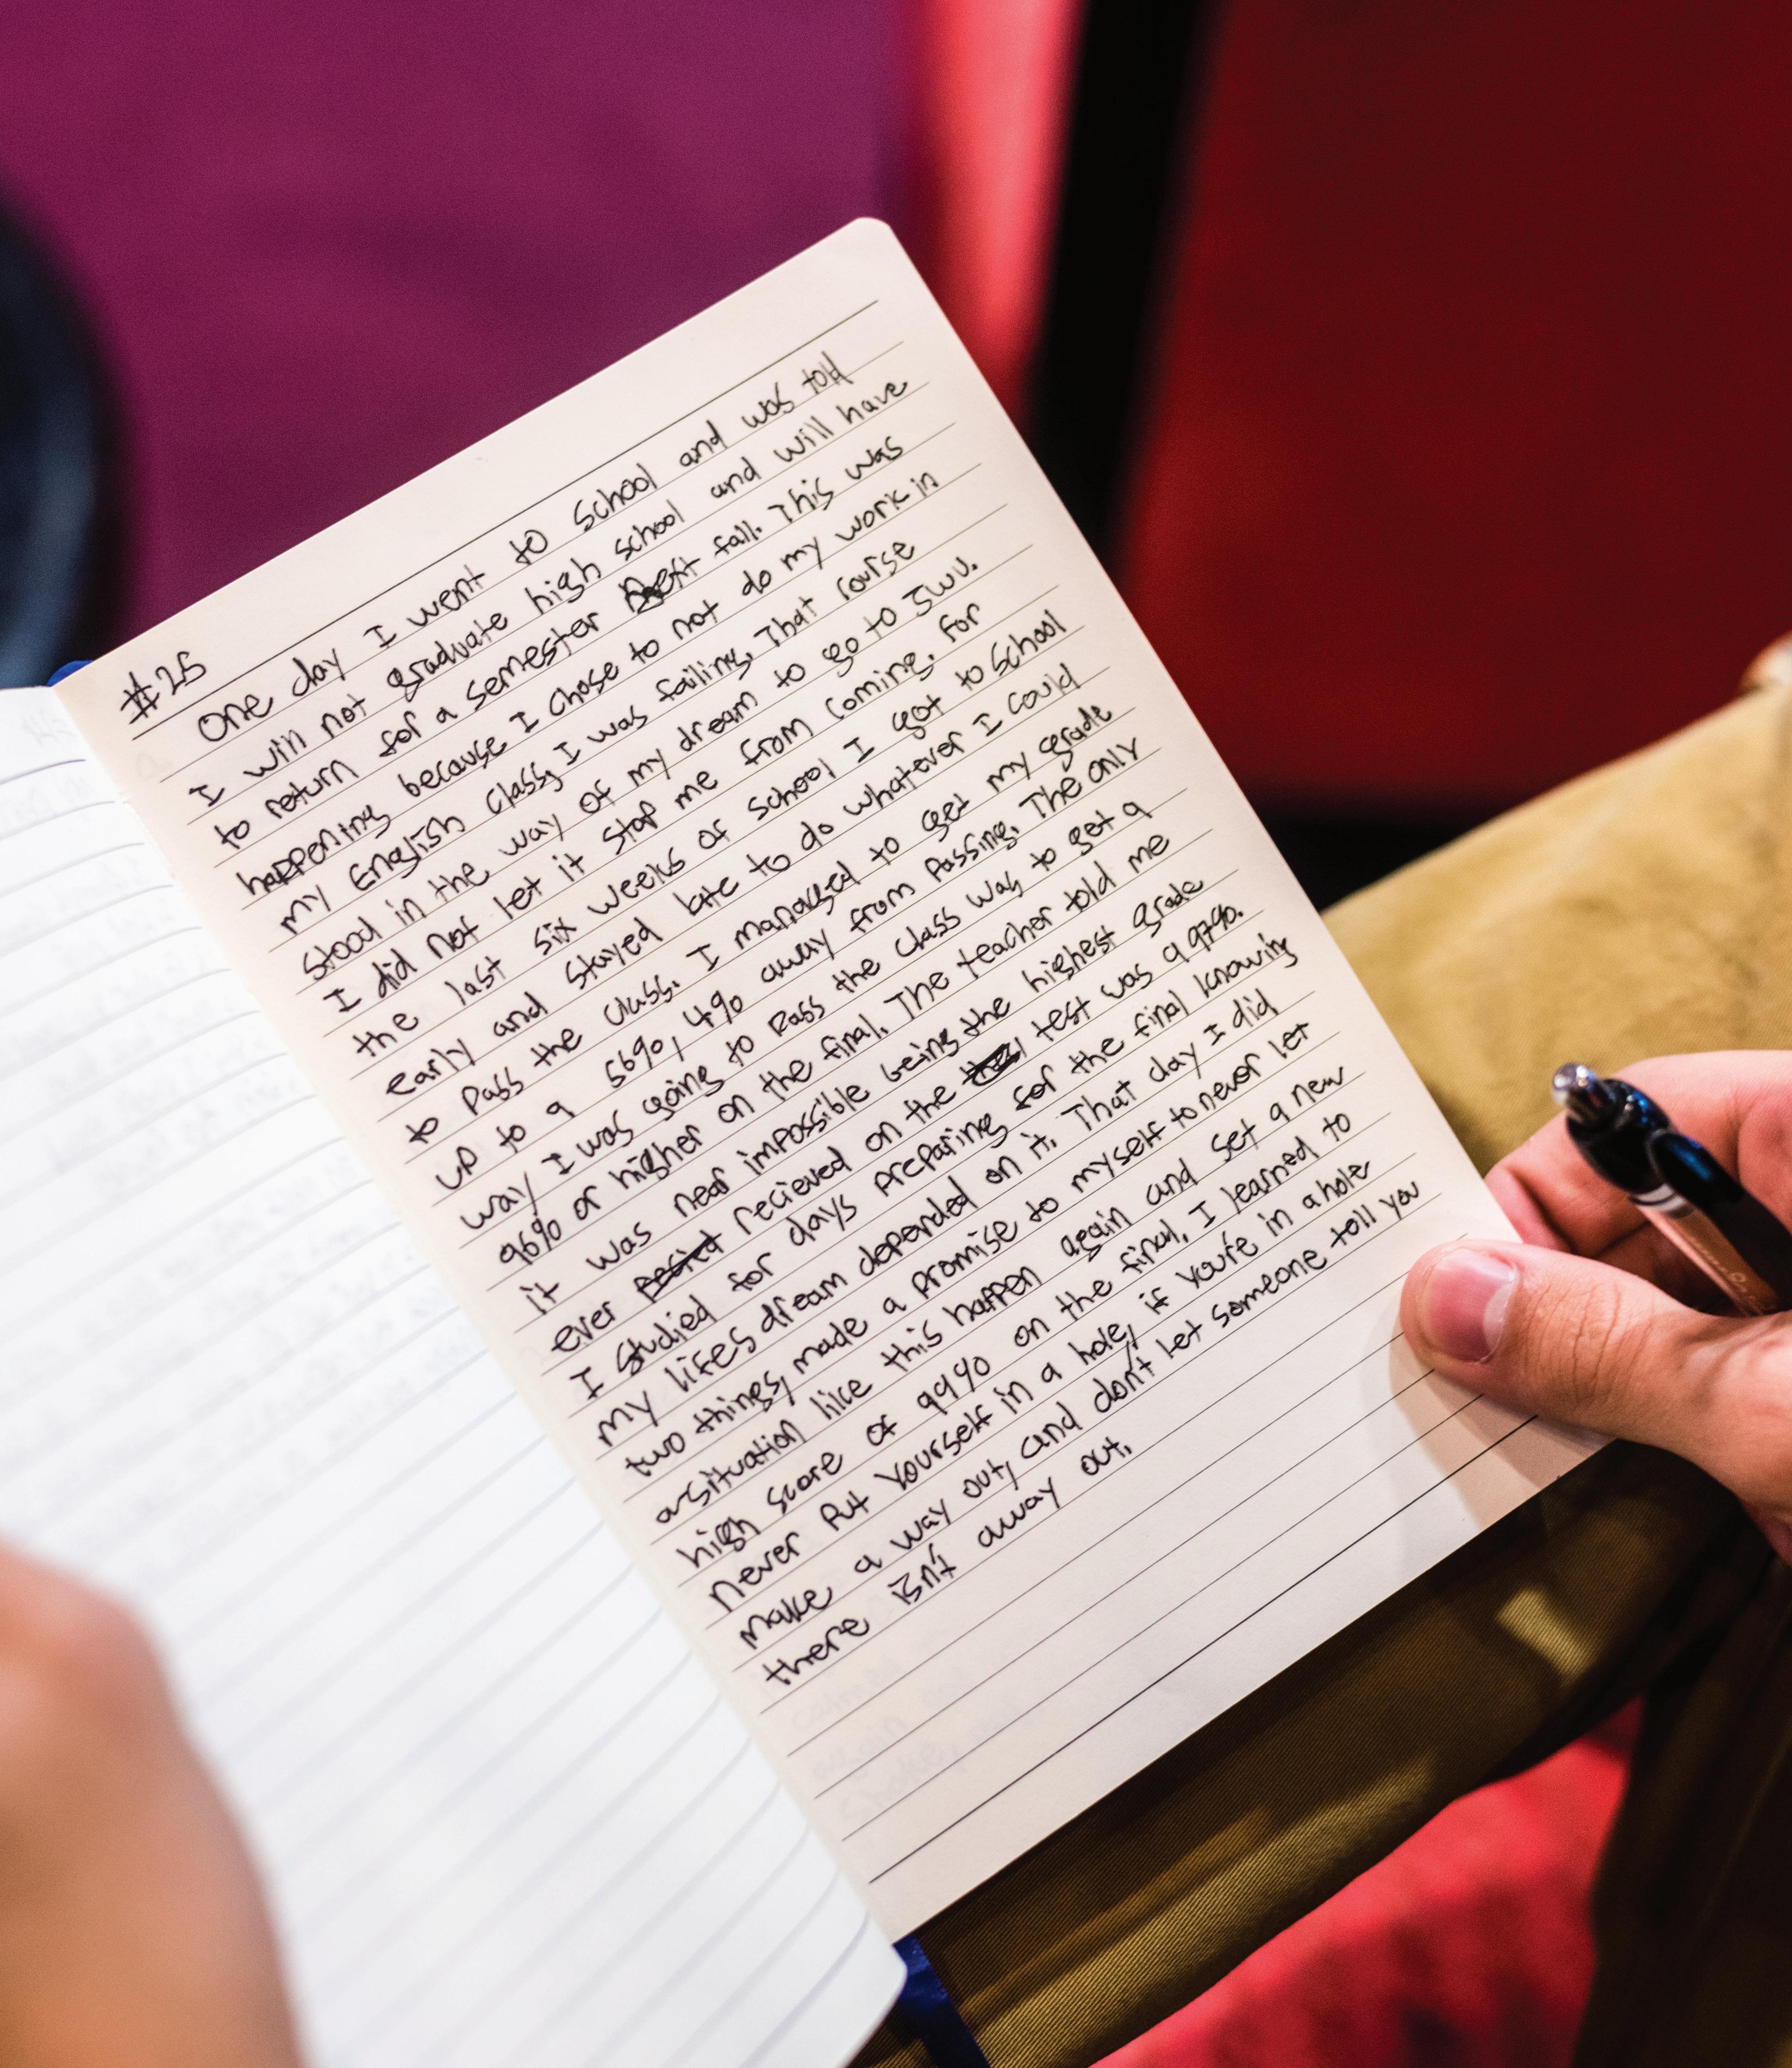 #25
One day I went to School and was told
I will not graduate high school and will have
to return for a semester next fall. This was
happening because I chose to not do my work in
my English class, I was failing. That course
stood in the way of my dream to go to JWU.
I did not let it stop me from coming. For
the last six weeks of school I got to school
early and stayed late to do whatever I could
to pass the class. I managed to get my grade
up to a 56%, 4% away from passing. The only
way I was going to pass the class was to get a
96% or higher on the final. The teacher told me
it was near impossible being the highest grade
ever recieved on the test was a 97%.
I studied for days preparing for the final knowing
my lifes dream depended on it. That day I did
two things, made a promise to myself to never let
a situation like this happen again and set a new
high score of 99% on the final. I learned to
never put yourself in a hole, if you're in a hole
make a way out, and don't let someone tell you
there isn't away out.